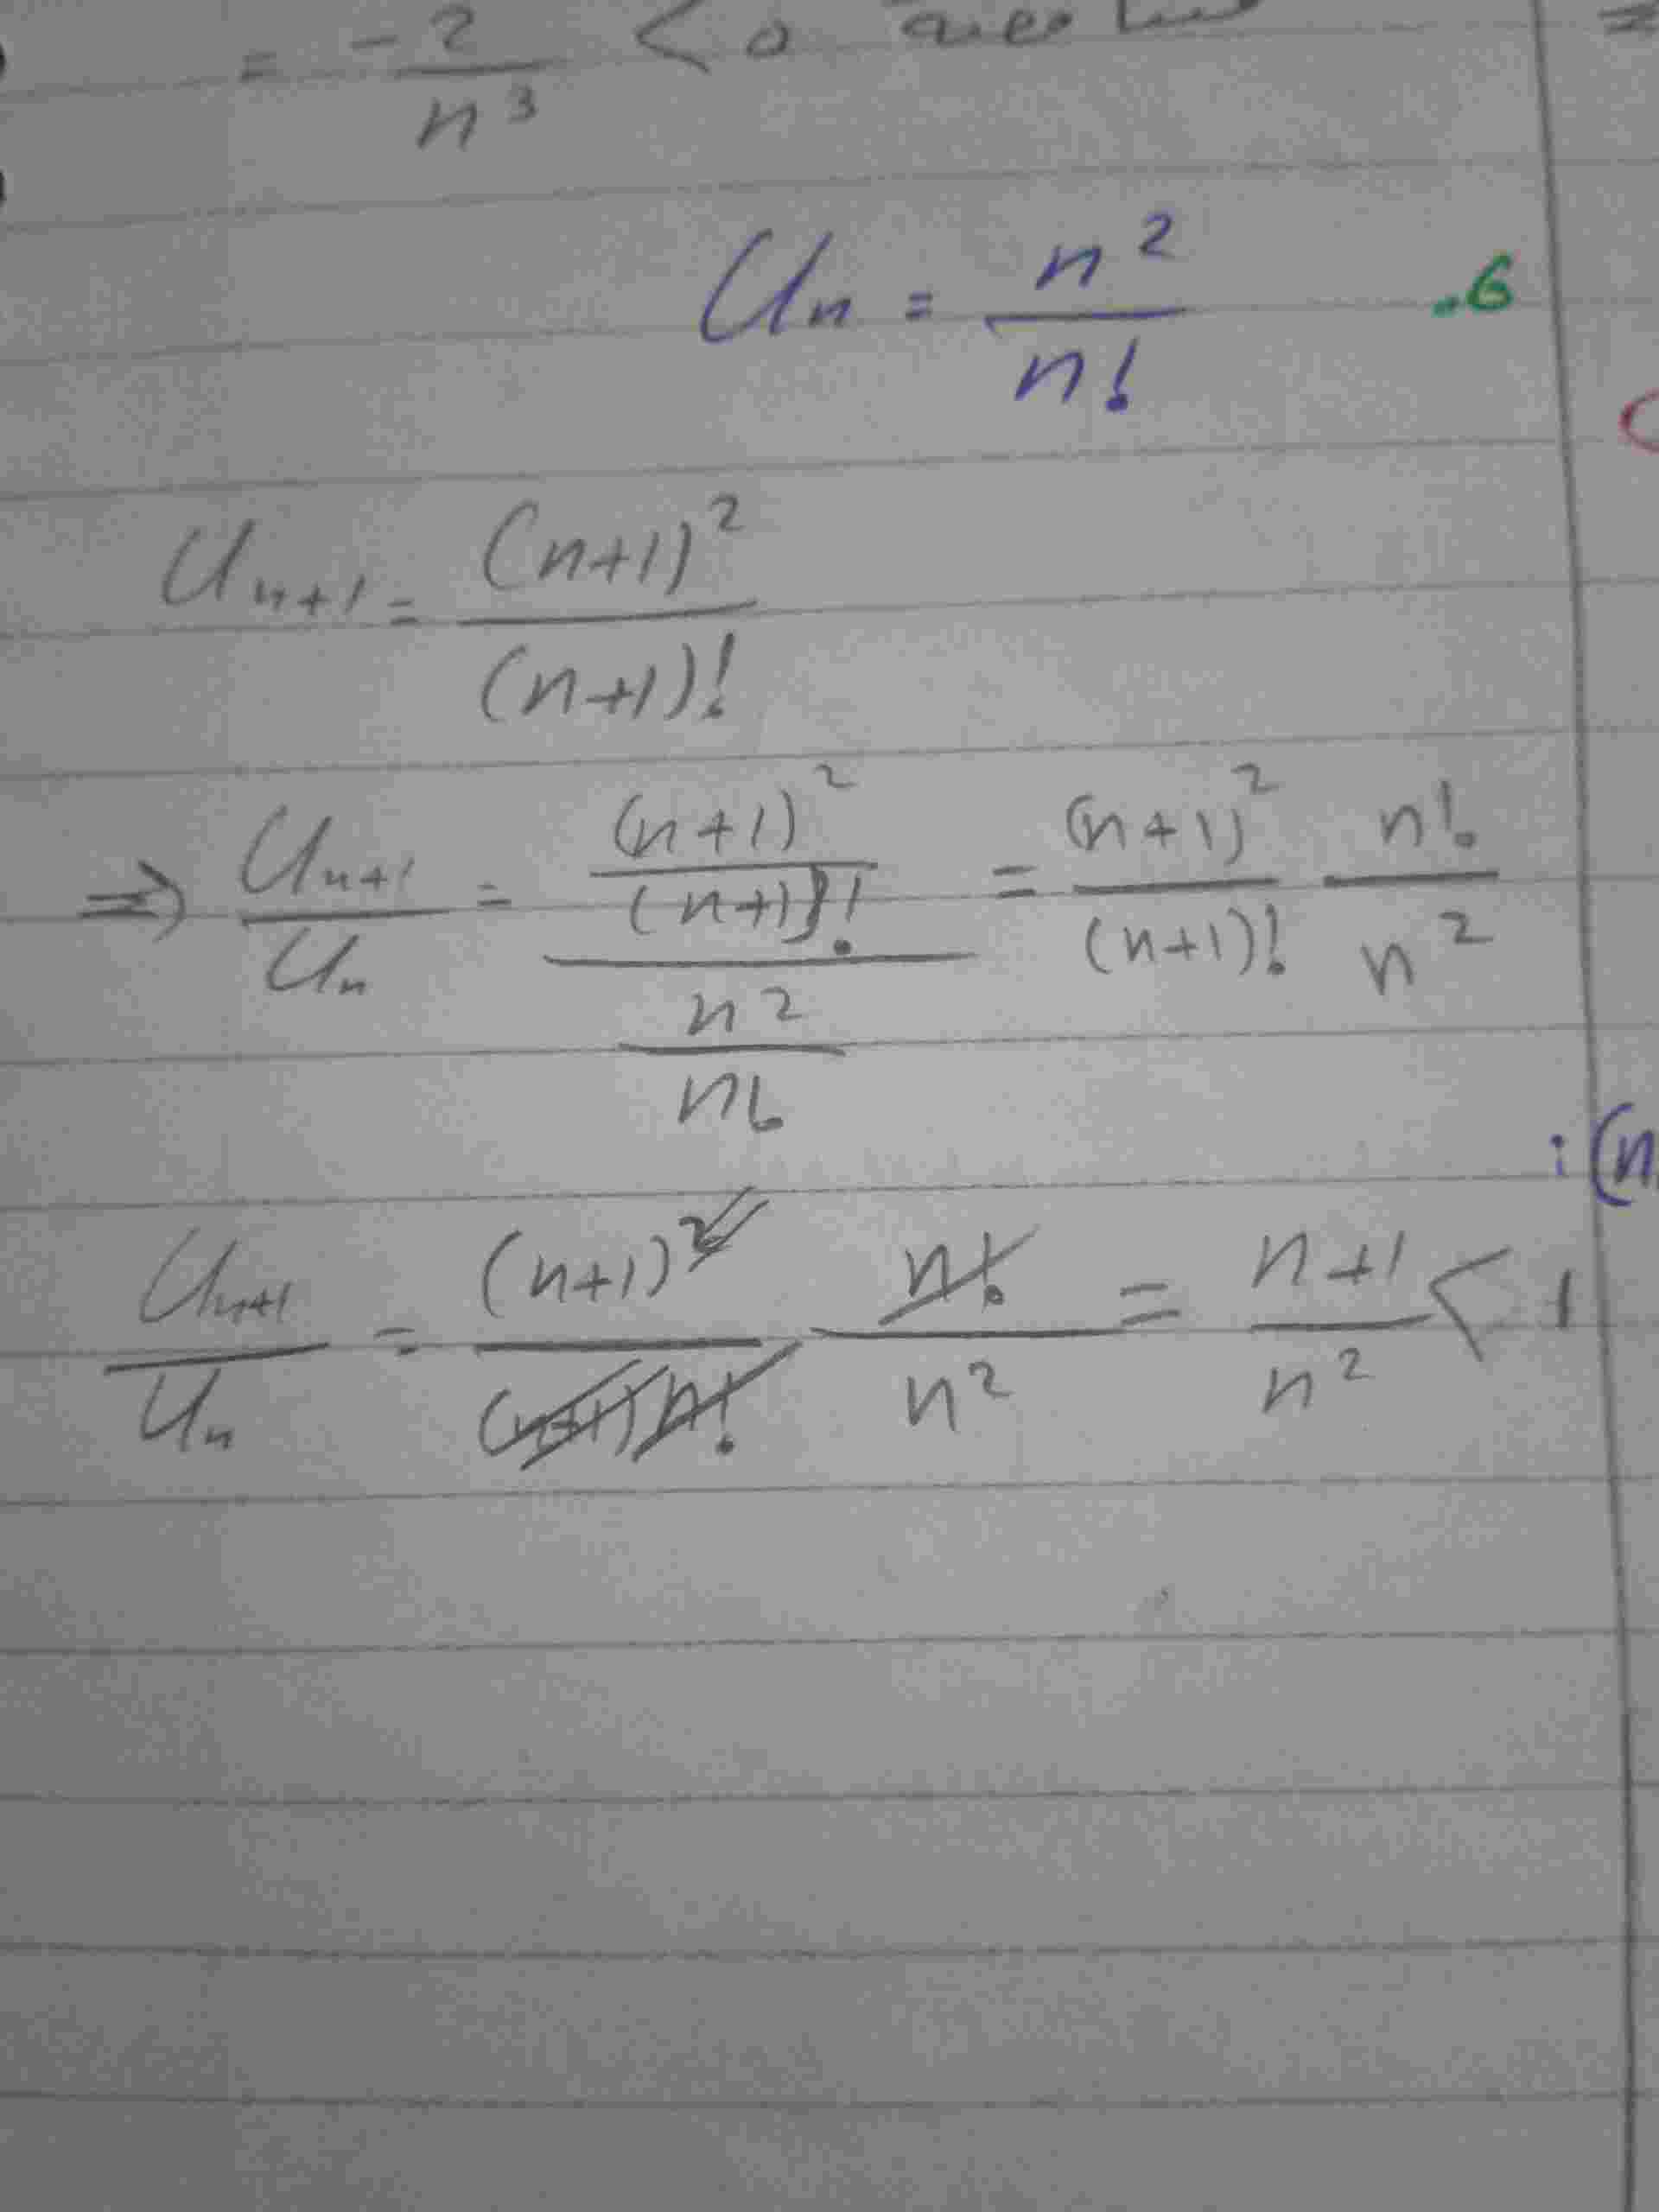 = -2/n³ < 0
Un = n²/n! .6
Un+1 = (n+1)²/(n+1)!
⇒ Un+1/Un = ((n+1)²/(n+1)!)/(n²/n!) = (n+1)²/(n+1)! n!/n²
: (n
Un+1/Un = (n+1)²/(n+1)n! n!/n² = n+1/n² < 1